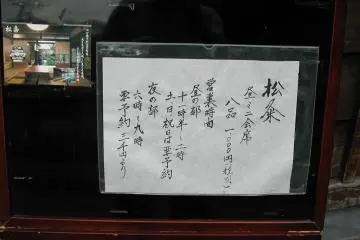 松粂
昼ミニ会席
八品 一、〇〇〇円(税別)
営業時間
昼の部
十一時半〜二時
土、日、祝日は要予約
夜の部
六時〜九時
要予約 三千円より